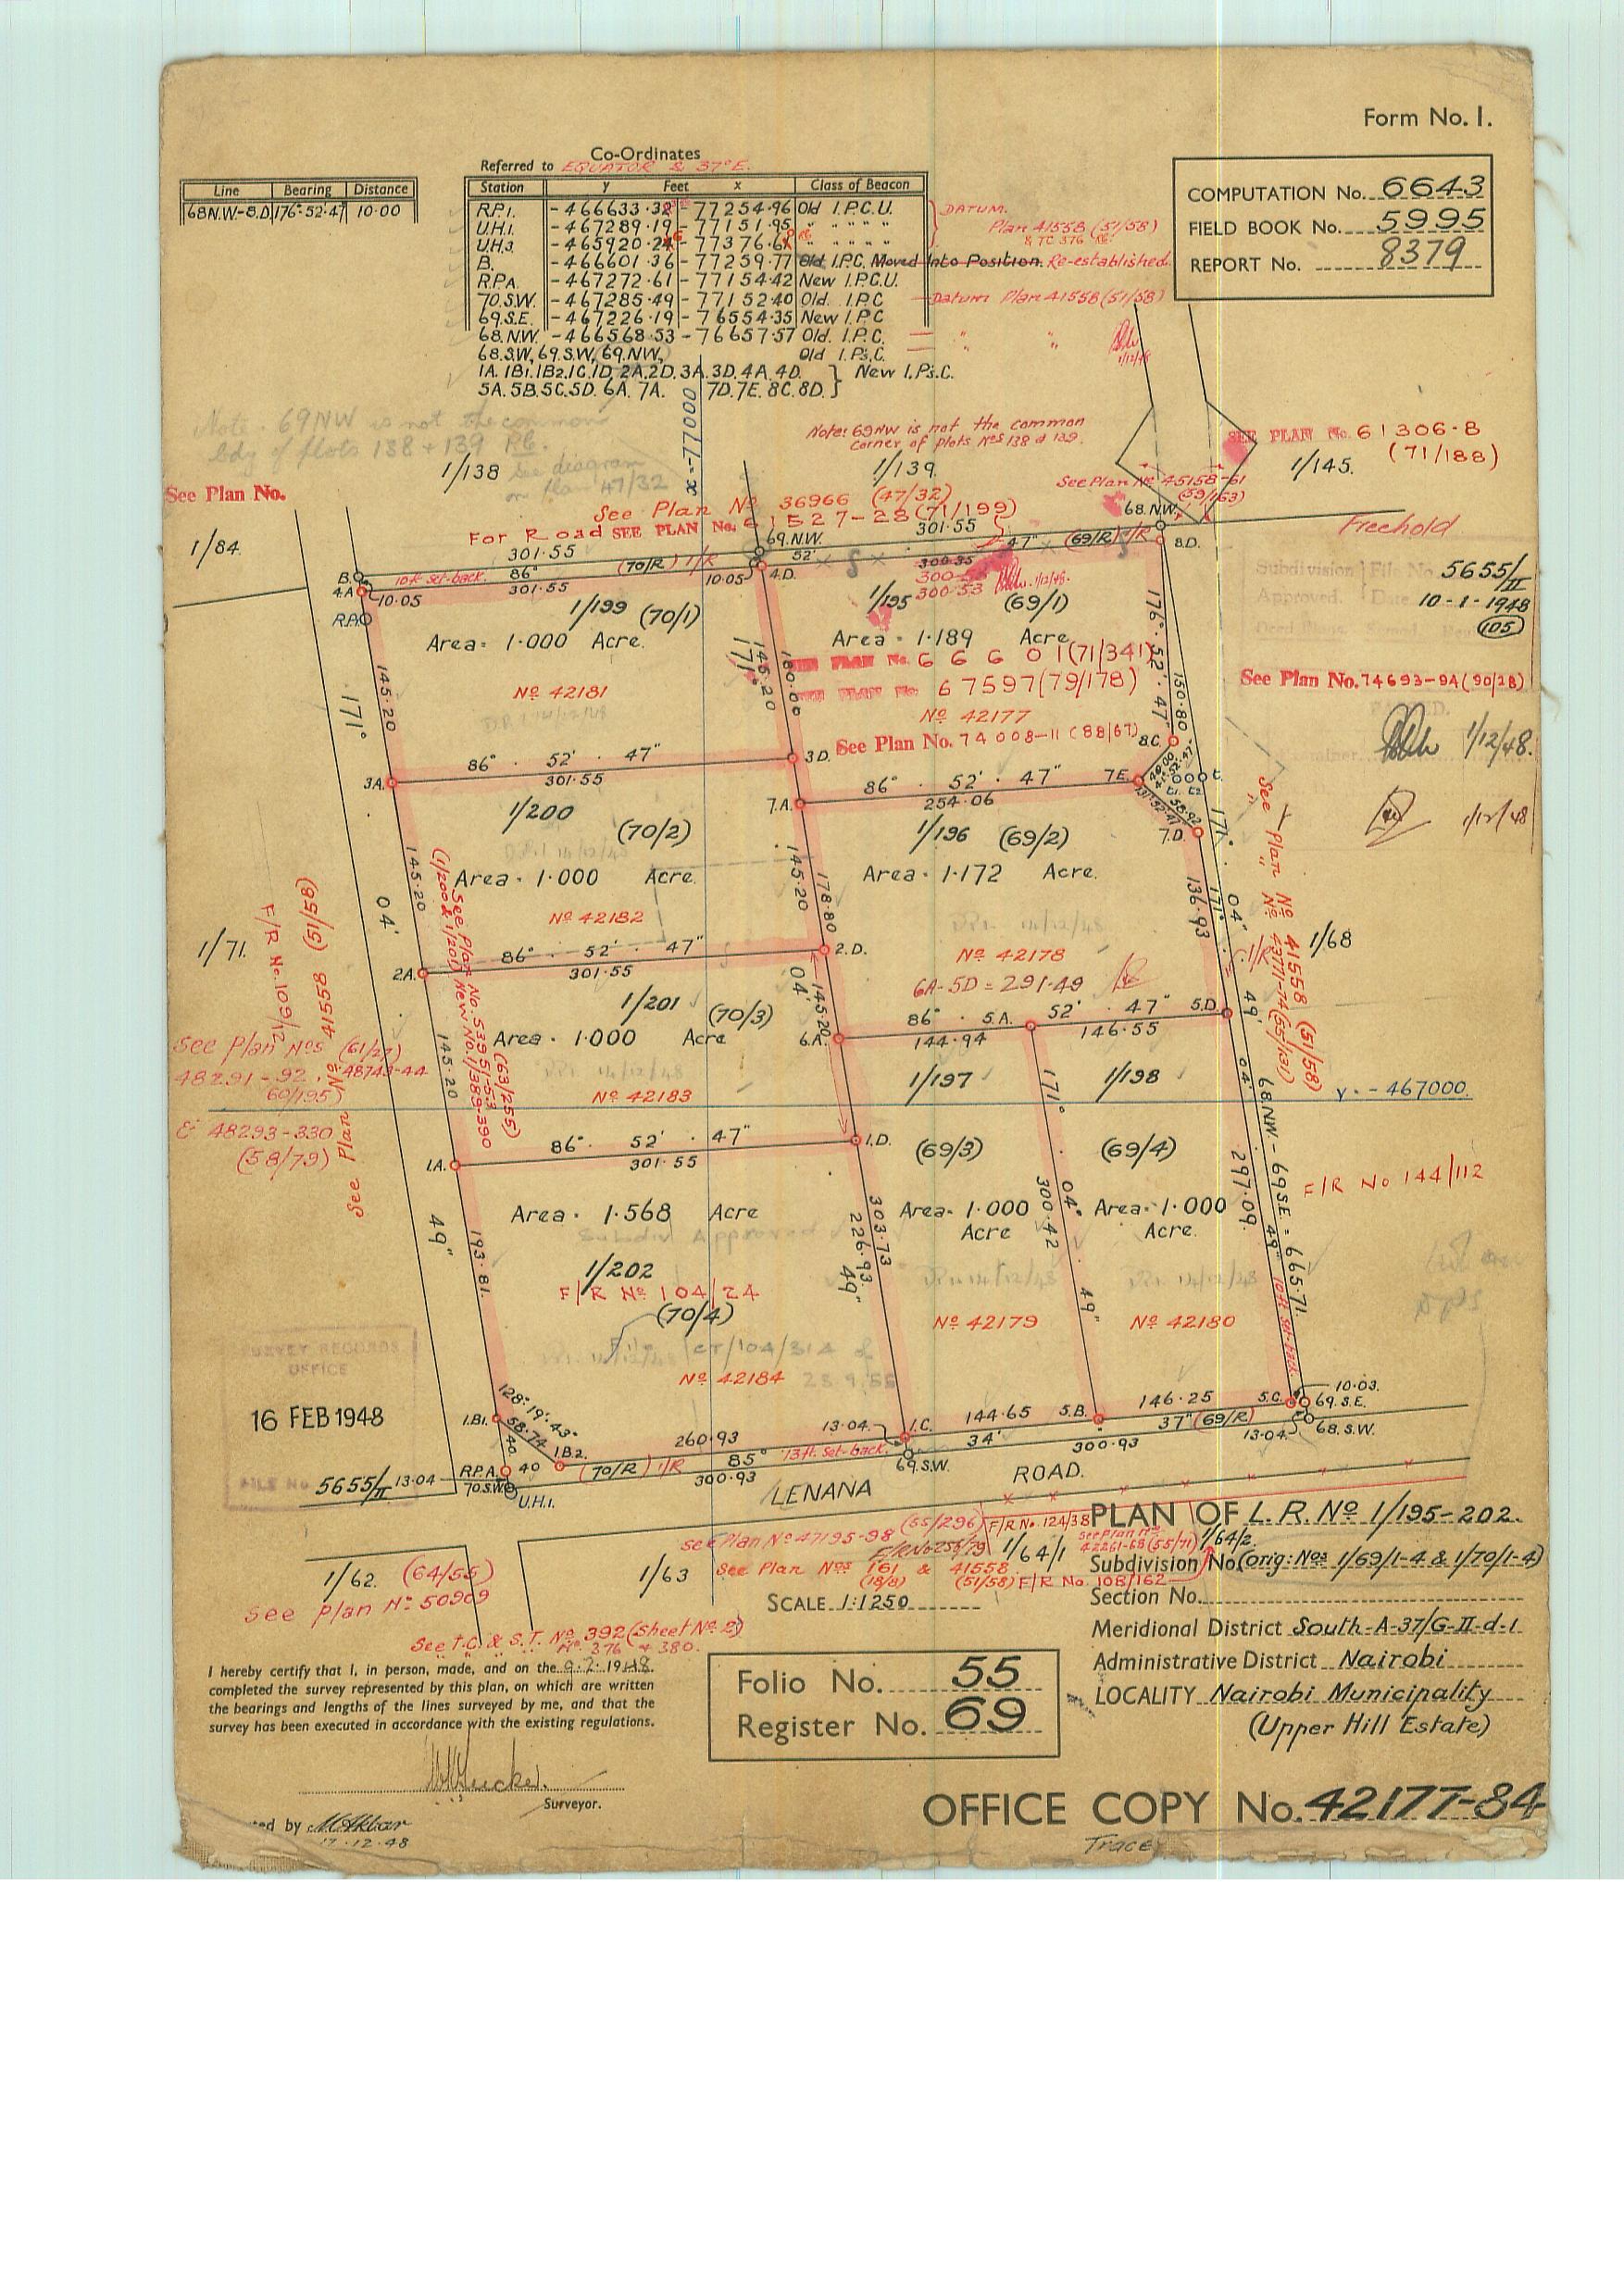 Form No. 1.
Co-Ordinates
Referred to EQUATOR & 37° E.
Line Bearing Distance
68N.W-8.D 176·52·47 10·00
Station y Feet x Class of Beacon
R.P.1. -466633·38 -77254·96 Old I.P.C.U.
U.H.1. -467289·19 -77151·95 " " " " "
U.H.3. -465920·2 -77376·6 " " " " "
B. -466601·36 -77259·77 Old I.P.C. Moved Into Position. Re-established.
R.P.A. -467272·61 -77154·42 New I.P.C.U.
70.S.W. -467285·49 -77152·40 Old. I.P.C
69.S.E. -467226·19 -76554·35 New I.P.C
68.NW. -466568·53 -76657·57 Old. I.P.C.
68.S.W, 69.S.W, 69.NW, Old I.Ps.C.
1A. 1B1. 1B2. 1C. 1D. 2A. 2D. 3A. 3D. 4A. 4D.
5A. 5B. 5C. 5D. 6A. 7A. 7D. 7E. 8C. 8D. } New I.Ps.C.
DATUM.
Plan 41558 (51/58)
& TC 376
Datum Plan 41558 (51/58)
" "
1/12/48
COMPUTATION No. 6643
FIELD BOOK No. 5995
REPORT No. 8379
Note. 69NW is not the common
bdy of plots 138 + 139 RG.
See diagram
on plan 47/32
Note: 69NW is not the common
corner of plots Nos 138 & 139.
x = -77000
1/138
1/139.
SEE PLAN No. 61306-8
(71/188)
1/145.
See Plan No.
See Plan No 45158-61
(59/163)
See Plan No 36966 (47/32)
For Road SEE PLAN No. 61527-28 (71/199)
68.NW.
Freehold
1/84.
301·55
301·55
69.N.W.
(70/R) 1/R
52'
47"
(69/R) 1/R
8.D.
B.
4.A
10ft. set-back.
86°
10·05
301·55
10·05
4.D.
300·35
300·53
1/12/48.
R.P.1
Subdivision File No. 5655/II
Approved. Date 10-1-1948
(105)
1/199 (70/1)
Area = 1·000 Acre.
No 42181
1/195 (69/1)
Area = 1·189 Acre
SEE PLAN No. 66601 (71/341)
SEE PLAN No. 67597 (79/178)
No 42177
See Plan No. 74008-11 (88/67)
See Plan No. 74693-94 (90/28)
1/12/48.
1/12/48
171°
145·20
171°
145·20
180·00
176·52'·47"
150·80
8.C.
86° 52' 47"
301·55
3.D.
3A.
86° 52' 47"
254·06
7.E.
40·00
t.
t1. t2.
58·92
7.D.
7.A.
1/200
(70/2)
Area = 1·000 Acre.
No 42182
1/196 (69/2)
Area = 1·172 Acre.
No 42178
6A-5D = 291·49
145·20
04'
145·20
178·80
171°
136·93
171°
04'
See Plan No 41558 (51/58)
" " No 43771-74 (55/131)
1/R
1/68
See Plan No. 53951-53 (63/255)
(1/200 & 1/201) New No. 1/389-390
1/71.
F/R No. 109/12
See Plan No 41558 (51/58)
86° 52' 47"
301·55
2.D.
2A.
1/201
(70/3)
Area = 1·000 Acre
No 42183
04'
145·20
145·20
86° 5.A. 52' 47" 5.D.
144·94 146·55
6.A.
49'
1/197
1/198
See Plan Nos (61/27)
48291-92, 48743-44
60/195)
& 48293-330
(58/79)
y = -467000.
86° 52' 47"
301·55
1.A.
1.D.
(69/3)
(69/4)
171°
04'
300·42
49"
04'
297·09
68.NW - 69.S.E. = 665·71.
49"
F/R No 144/112
Area = 1·568 Acre
Subdiv. Approved
1/202
F/R No 104/24
(70/4)
CT/104/314 of
23.9.55
No 42184
Area = 1·000
Acre
No 42179
Area = 1·000
Acre.
No 42180
49"
193·81.
303·73
226·93
49"
10ft. set-back.
SURVEY RECORDS
OFFICE
16 FEB 1948
FILE No. 5655/II
128°·19'·43"
58·74
1.B1.
40
1B2.
40
R.P.A.
13·04
70.S.W.
U.H.1.
260·93
(70/R) 1/R
85°
13ft. Set-back.
300·93
13·04
1.C.
69.S.W.
144·65
5.B.
146·25
5.C.
34'
37"
(69/R)
300·93
13·04
10·03.
69.S.E.
68.S.W.
LENANA ROAD.
1/62. (64/55)
See plan No 50909
1/63
see Plan No 47195-98 (55/296)
F/R No 256/79
F/R No. 124/38
See Plan Nos 161 & 41558
(18/8) (51/58)
1/64/1
see Plan No
42261-68 (55/71)
1/64/2
F/R No. 108/162
SCALE 1:1250
See T.C. & S.T. No 392 (Sheet No 2)
" " No. 376 & 380.
PLAN OF L.R. No 1/195-202.
Subdivision No. (orig: Nos 1/69/1-4 & 1/70/1-4)
Section No.
Meridional District South-A-37/G-II-d-1
Administrative District Nairobi
LOCALITY Nairobi Municipality
(Upper Hill Estate)
I hereby certify that I, in person, made, and on the 9.2. 1948.
completed the survey represented by this plan, on which are written
the bearings and lengths of the lines surveyed by me, and that the
survey has been executed in accordance with the existing regulations.
Surveyor.
Folio No. 55
Register No. 69
by M. Akbar
17.12.48
OFFICE COPY No. 42177-84
Trace